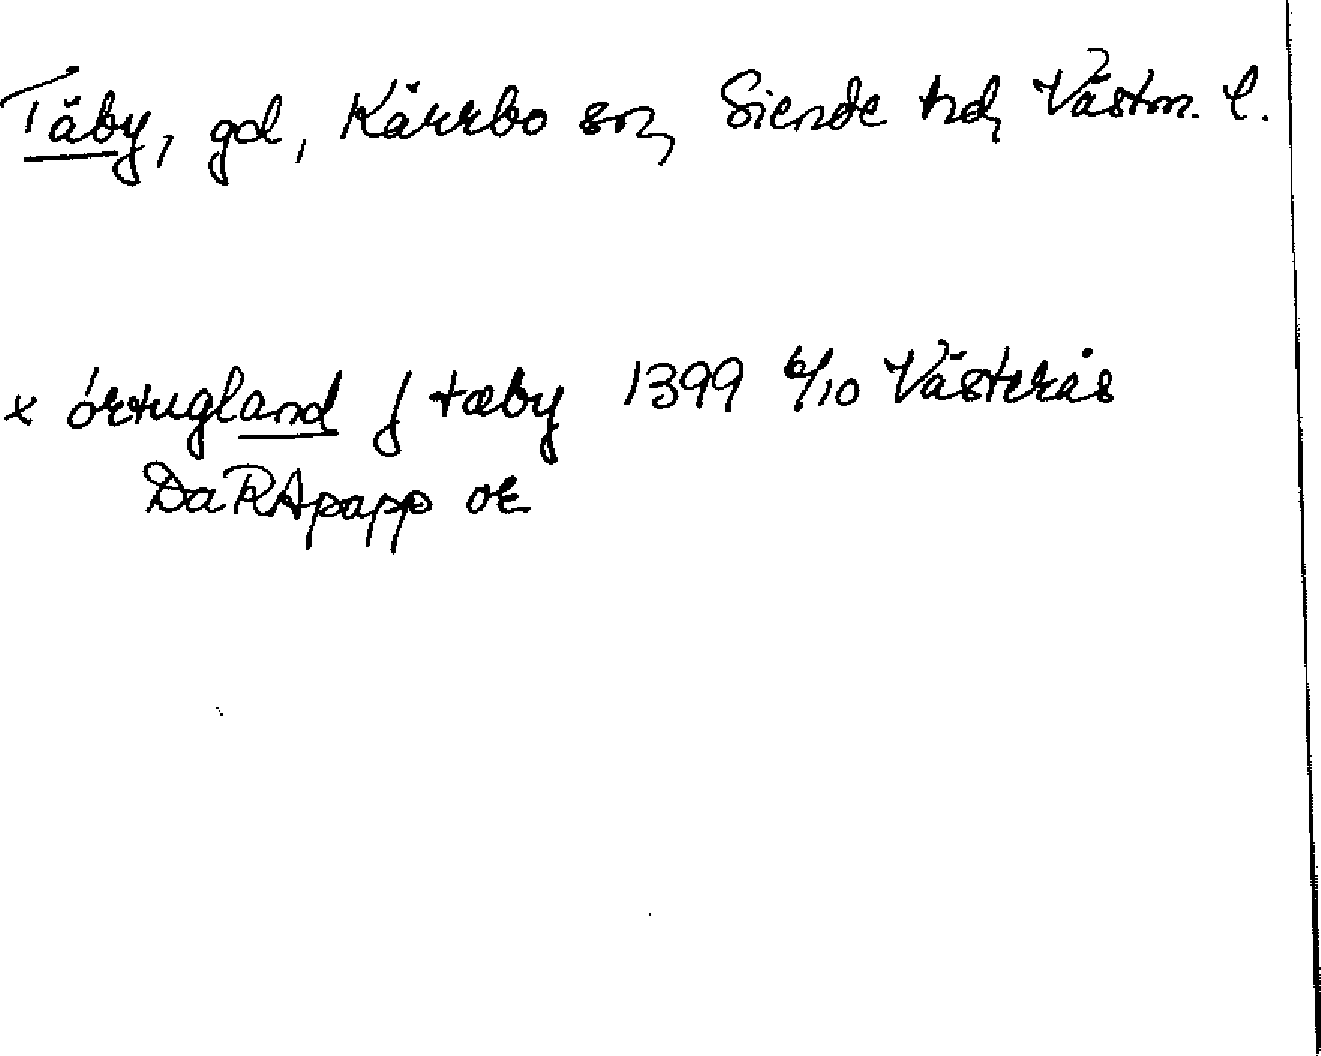 Täby, gd, Kärrbo sn, Siende hd, Västm. l.
x órtugland j tæby 1399 6/10 Västerås
DaRApapp or